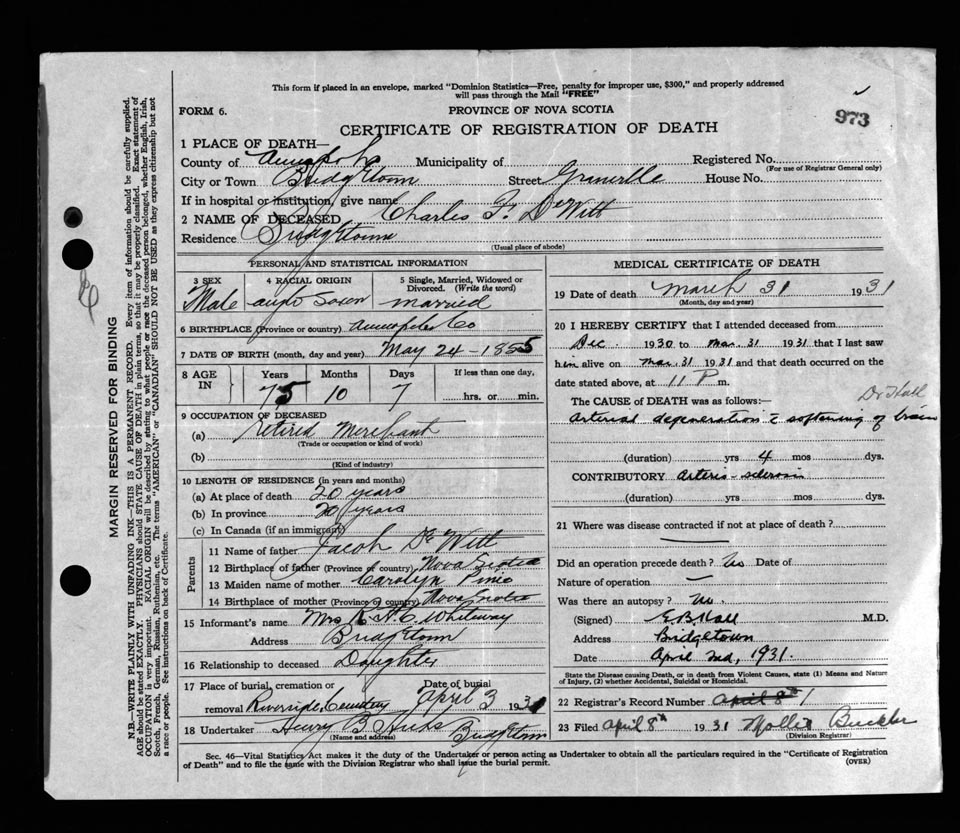 This form if placed in an envelope, marked "Dominion Statistics—Free, penalty for improper use, $300," and properly addressed
will pass through the Mail "FREE"
FORM 6.
PROVINCE OF NOVA SCOTIA
973
CERTIFICATE OF REGISTRATION OF DEATH
1 PLACE OF DEATH—
County of Annapolis Municipality of Registered No.
(For use of Registrar General only)
City or Town Bridgetown Street Granville House No.
If in hospital or institution, give name
2 NAME OF DECEASED Charles F. DeWitt
Residence Bridgetown
(Usual place of abode)
PERSONAL AND STATISTICAL INFORMATION
3 SEX 4 RACIAL ORIGIN 5 Single, Married, Widowed or Divorced. (Write the word)
Male anglo Saxon married
6 BIRTHPLACE (Province or country) Annapolis Co
7 DATE OF BIRTH (month, day and year) May 24 - 1855
8 AGE IN Years Months Days If less than one day,
75 10 7 hrs. or min.
9 OCCUPATION OF DECEASED
(a) Retired Merchant
(Trade or occupation or kind of work)
(b)
(Kind of industry)
10 LENGTH OF RESIDENCE (in years and months)
(a) At place of death 20 years
(b) In province 20 years
(c) In Canada (if an immigrant)
Parents
11 Name of father Jacob De Witt
12 Birthplace of father (Province or country) Nova Scotia
13 Maiden name of mother Carolyn Pineo
14 Birthplace of mother (Province or country) Nova Scotia
15 Informant's name Mrs R. H. C. Whiteway
Address Bridgetown
16 Relationship to deceased Daughter
17 Place of burial, cremation or removal Date of burial
Riverside Cemetery April 3 1931
18 Undertaker Henry B Hicks Bridgetown
(Name and address)
MEDICAL CERTIFICATE OF DEATH
19 Date of death March 31 1931
(Month, day and year)
20 I HEREBY CERTIFY that I attended deceased from
Dec. 1930 to Mar. 31 1931 that I last saw
him alive on Mar. 31 1931 and that death occurred on the
date stated above, at 11 P m.
Dr Hall
The CAUSE of DEATH was as follows:
Arterial degeneration & softening of brain
(duration) yrs 4 mos dys.
CONTRIBUTORY Arterio-sclerosis
(duration) yrs. mos dys.
21 Where was disease contracted if not at place of death?
Did an operation precede death? No Date of
Nature of operation —
Was there an autopsy? No.
(Signed) E.B. Hall M.D.
Address Bridgetown
Date April 2nd, 1931.
State the Disease causing Death, or in death from Violent Causes, state (1) Means and Nature of Injury, (2) whether Accidental, Suicidal or Homicidal.
22 Registrar's Record Number April 8th 1
23 Filed April 8th 1931 Mollie Buckler
(Division Registrar)
Sec. 46—Vital Statistics Act makes it the duty of the Undertaker or person acting as Undertaker to obtain all the particulars required in the "Certificate of Registration
of Death" and to file the same with the Division Registrar who shall issue the burial permit.
(OVER)
MARGIN RESERVED FOR BINDING
N.B.—WRITE PLAINLY WITH UNFADING INK—THIS IS A PERMANENT RECORD. Every item of information should be carefully supplied.
AGE should be stated EXACTLY. PHYSICIANS should STATE CAUSE OF DEATH in plain terms, so that it may be properly classified. Exact statement of
OCCUPATION is very important. RACIAL ORIGIN will be described by stating to what people or race the deceased person belonged, whether English, Irish,
Scotch, French, German, Russian, Ruthenian, etc. The terms "AMERICAN" or "CANADIAN" SHOULD NOT BE USED as they express citizenship but not
a race or people. See instructions on back of Certificate.